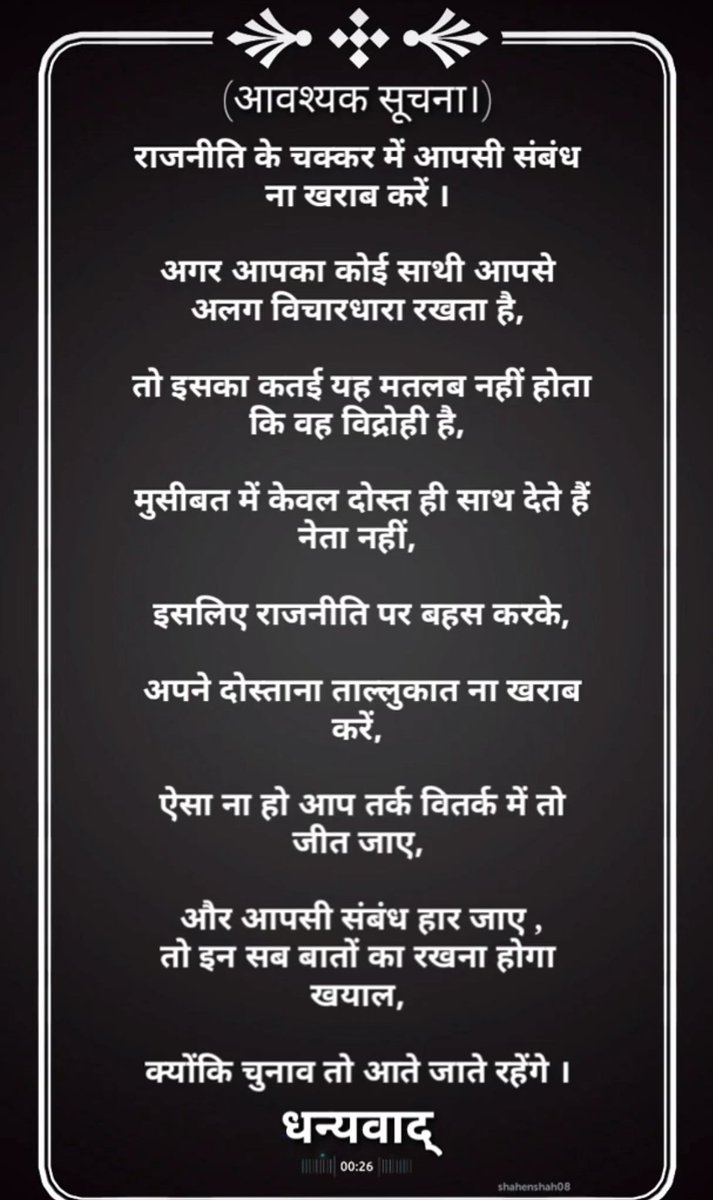 (आवश्यक सूचना।)
राजनीति के चक्कर में आपसी संबंध
ना खराब करें ।
अगर आपका कोई साथी आपसे
अलग विचारधारा रखता है,
तो इसका कतई यह मतलब नहीं होता
कि वह विद्रोही है,
मुसीबत में केवल दोस्त ही साथ देते हैं
नेता नहीं,
इसलिए राजनीति पर बहस करके,
अपने दोस्ताना ताल्लुकात ना खराब
करें,
ऐसा ना हो आप तर्क वितर्क में तो
जीत जाए,
और आपसी संबंध हार जाए ,
तो इन सब बातों का रखना होगा
खयाल,
क्योंकि चुनाव तो आते जाते रहेंगे ।
धन्यवाद्
00:26
shahenshah08